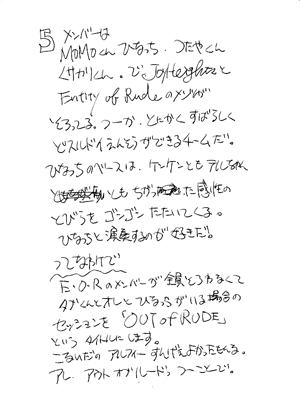 5 メンバーは
MOMOくん ひなっち. つたやくん
くサカリくん。で Joy Heightsと
Entity of Rude のメンツが
そろってる。つーか、とにかく すばらしく
どスルドイえんそうができるチームだ。
ひなっちのベースは、ケンケンとも テルちゃん
とも ちがった感性の
とびらを ゴンゴン たたいてくる。
ひなっちと演奏するのが 好きだ。
ってなわけで
E.O.Rのメンバーが全員とろわなくて
タブくんとオレと ひなっち がいる場合の
セッションを 「OUT of RUDE」
という タイトルにします。
こないだの アルフィー すんげえよかったもんなる。
アレ、アウト オブ ルードっつーことで。